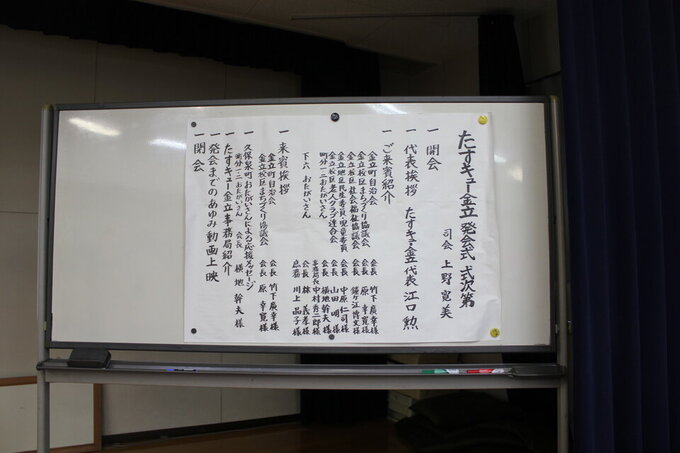 たすキュー金立 発会式 式次第
司会 上野 寛美
一 開会
一 代表挨拶 たすキュー金立 代表 江口 勲
一 ご来賓紹介
金立町自治会 会長 竹下 廣幸様
金立校区まちづくり協議会 会長 原 幸寛様
金立校区社会福祉協議会 会長 鍋ケ江 博文様
金立地区民生委員・児童委員 中原 仁司様
金立校区老人クラブ連合会 会長 山田 明様
町分一・二おたがいさん 会長 横地 幹夫様
事務局長 中村 秀二郎様
下六 おたがいさん 会長 林 義孝様
庶務 川上 品子様
一 来賓挨拶
金立町自治会 会長 竹下 廣幸様
金立校区まちづくり協議会 会長 原 幸寛様
一 久保泉町おたがいさんによる応援メッセージ
町分一・二おたがいさん 会長 横地 幹夫様
一 たすキュー金立事務局紹介
一 発会までのあゆみ動画上映
一 閉会